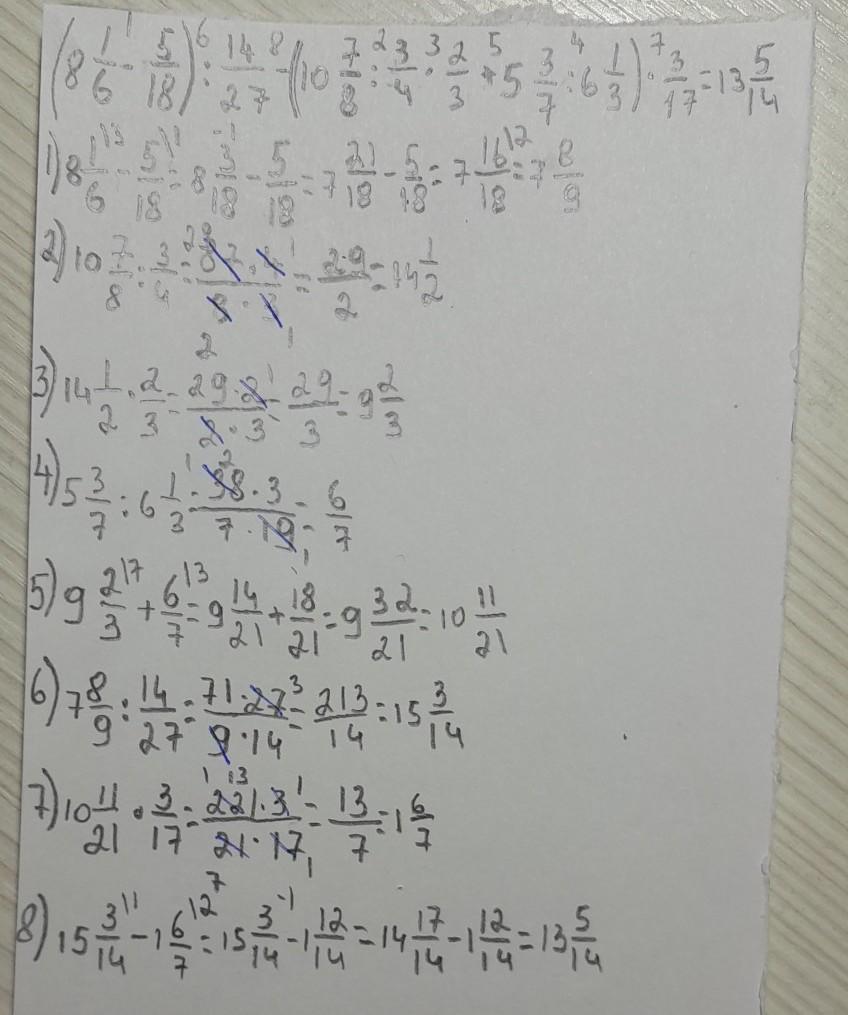 (8 1/6 - 5/18) : 14/27 - (10 7/8 : 3/4 · 2/3 + 5 3/7 : 6 1/3) · 3/17 = 13 5/14
1) 8 1/6 - 5/18 = 8 3/18 - 5/18 = 7 21/18 - 5/18 = 7 16/18 = 7 8/9
2) 10 7/8 : 3/4 = 87·4/8·3 = 29/2 = 14 1/2
3) 14 1/2 · 2/3 = 29·2/2·3 = 29/3 = 9 2/3
4) 5 3/7 : 6 1/3 = 38·3/7·19 = 6/7
5) 9 2/3 + 6/7 = 9 14/21 + 18/21 = 9 32/21 = 10 11/21
6) 7 8/9 : 14/27 = 71·27/9·14 = 213/14 = 15 3/14
7) 10 11/21 · 3/17 = 221·3/21·17 = 13/7 = 1 6/7
8) 15 3/14 - 1 6/7 = 15 3/14 - 1 12/14 = 14 17/14 - 1 12/14 = 13 5/14